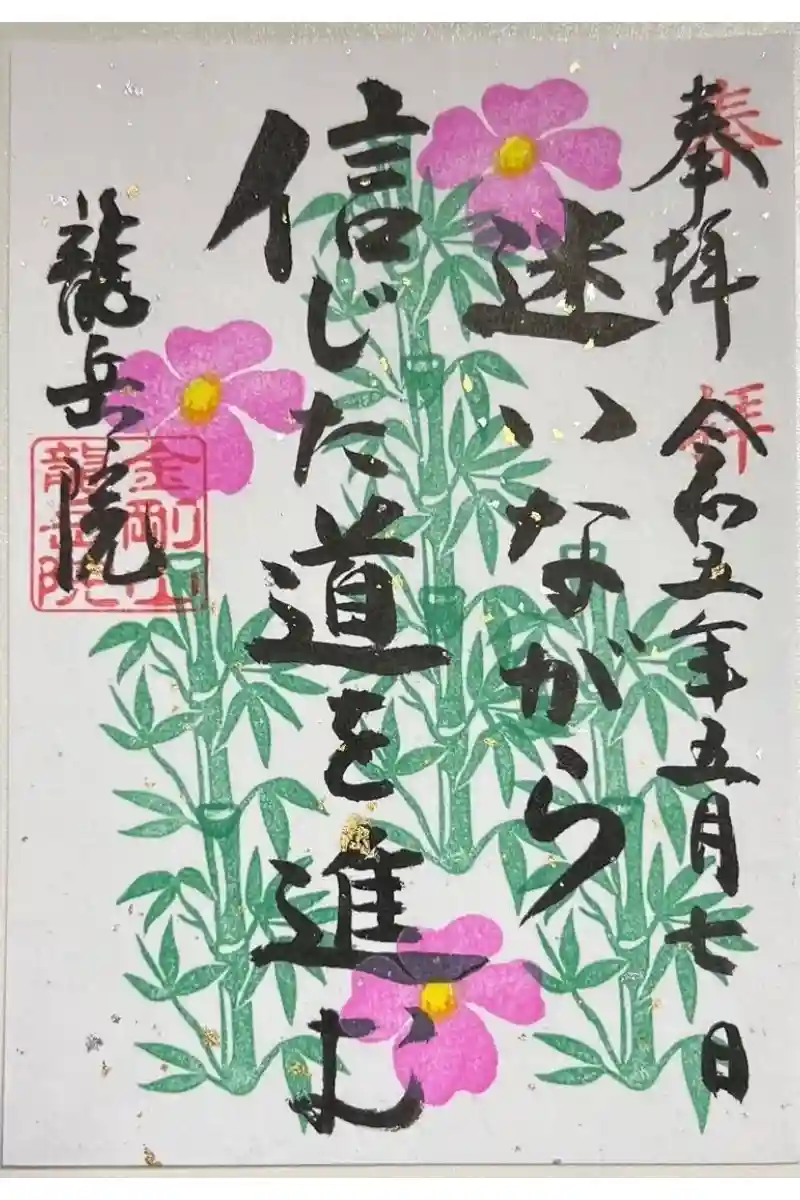 奉拝
奉
拝
令和五年五月七日
迷いながら
信じた道を進む
龍岳院
金剛山
龍岳院